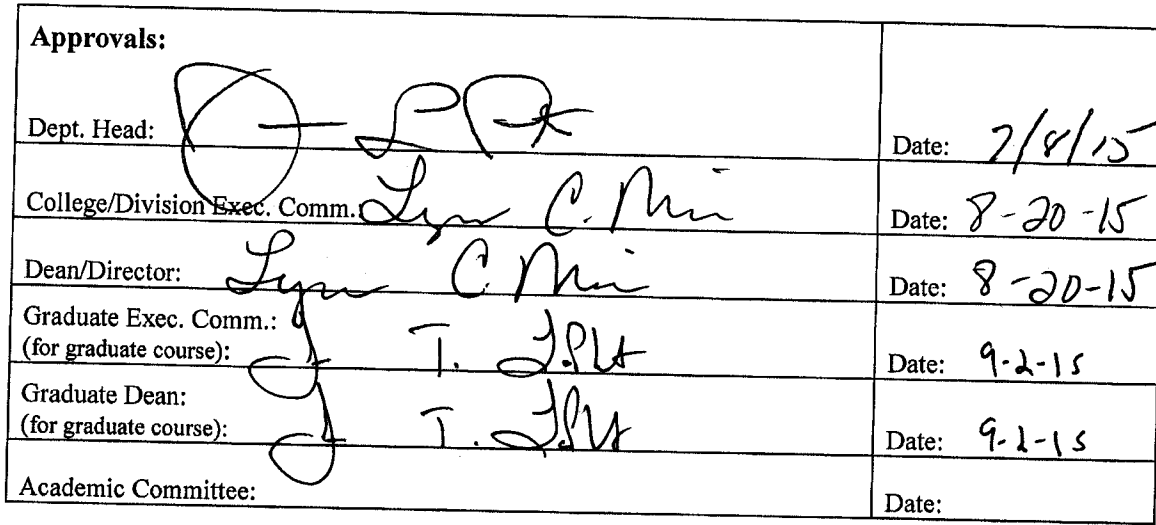 Approvals:
Dept. Head: Date: 7/8/15
College/Division Exec. Comm.: Lynn C. Date: 8-20-15
Dean/Director: Lynn C. Date: 8-20-15
Graduate Exec. Comm.:
(for graduate course): T. Date: 9-2-15
Graduate Dean:
(for graduate course): T. Date: 9-2-15
Academic Committee: Date: